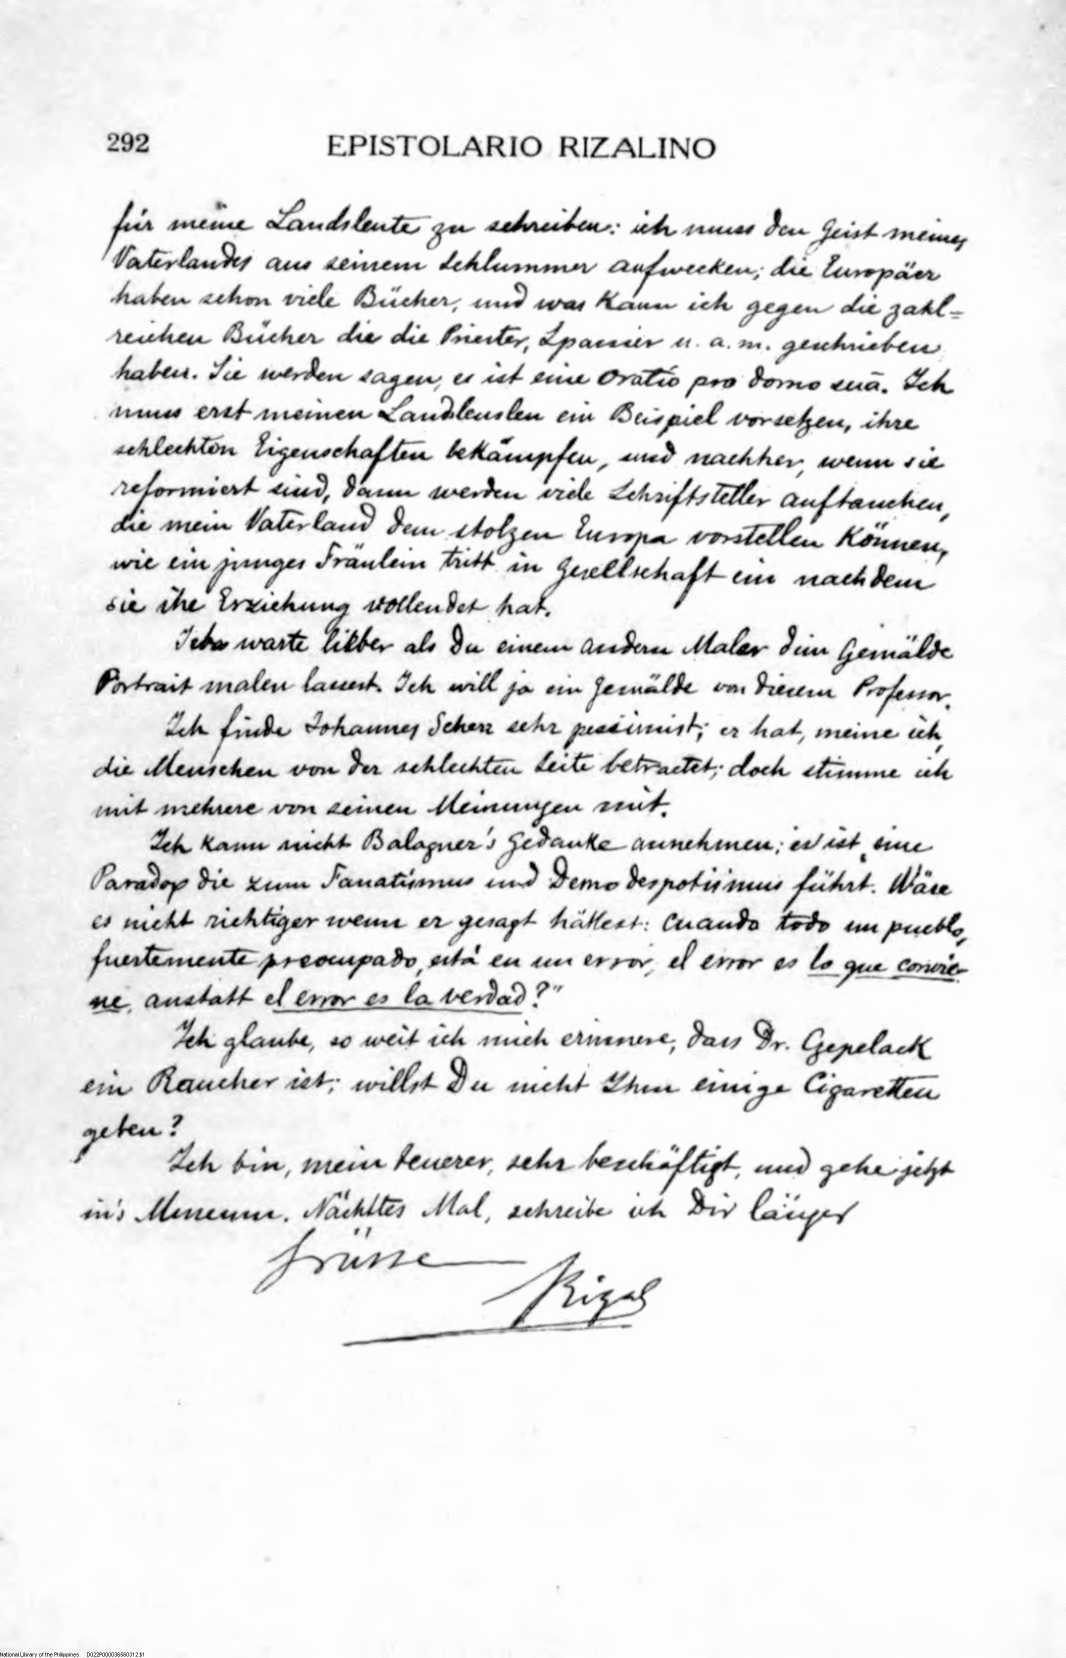 292 EPISTOLARIO RIZALINO
für meine Landsleute zu schreiben: ich muss den Geist meines
Vaterlandes aus seinem Schlummer aufwecken; die Europäer
haben schon viele Bücher, und was kann ich gegen die zahl=
reichen Bücher die die Priester, Spanier u. a. m. geschrieben
haben. Sie werden sagen, es ist eine oratio pro domo suā. Ich
muss erst meinen Landsleuten ein Beispiel vorsetzen, ihre
schlechten Eigenschaften bekämpfen, und nachher, wenn sie
reformiert sind, dann werden viele Schriftsteller auftauchen,
die mein Vaterland dem stolzen Europa vorstellen können,
wie ein junges Fräulein tritt in Gesellschaft ein nachdem
sie ihe Erziehung vollendet hat.
Ich warte lieber als Du einem andern Maler dein Gemälde
Portrait malen lassest. Ich will ja ein Gemälde von diesem Professor.
Ich finde Johannes Scherr sehr pessimist; er hat, meine ich,
die Menschen von der schlechten Seite betractet; doch stimme ich
mit mehrere von seinen Meinungen mit.
Ich kann nicht Balaguer's Gedanke annehmen; es ist eine
Paradox die zum Fanatismus und Demodespotismus führt. Wäre
es nicht richtiger wenn er gesagt hättest: cuando todo un pueblo,
fuertemente preocupado, está en un error, el error es lo que convie-
ne, anstatt el error es la verdad?"
Ich glaube, so weit ich mich erinnere, dass Dr. Czepelack
ein Raucher ist; willst Du nicht Ihm einige Cigaretten
geben?
Ich bin, mein teuerer, sehr beschäftigt, und gehe jetzt
in's Museum. Nächstes Mal, schreibe ich Dir länger
Grüsse
Rizal
National Library of the Philippines